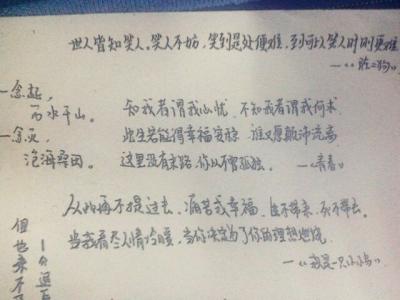 世人皆知笑人。笑人不妨,笑到是处便难,到可以笑人时则更难
—《陈二狗》
一念起,
万水千山。
一念灭,
沧海桑田。
知我者谓我心忧,不知我者谓我何求
此生若能得幸福安稳,谁又愿颠沛流离
这里没有末路,你从不曾孤独。—《青春》
从此再不提过去。痛苦或幸福,生不带来,死不带去。
当我看尽人情冷暖,当你决定为了你的理想燃烧
—《我是一只小小鸟》
但也来不
1分